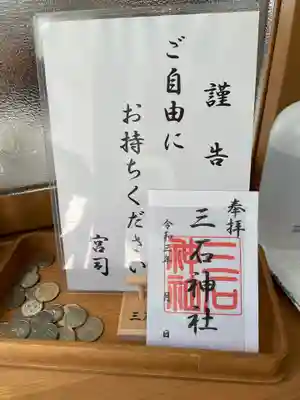 謹告
ご自由に
お持ちください
宮司
奉拝
三石神社
令和三年 月 日
三石神社
三